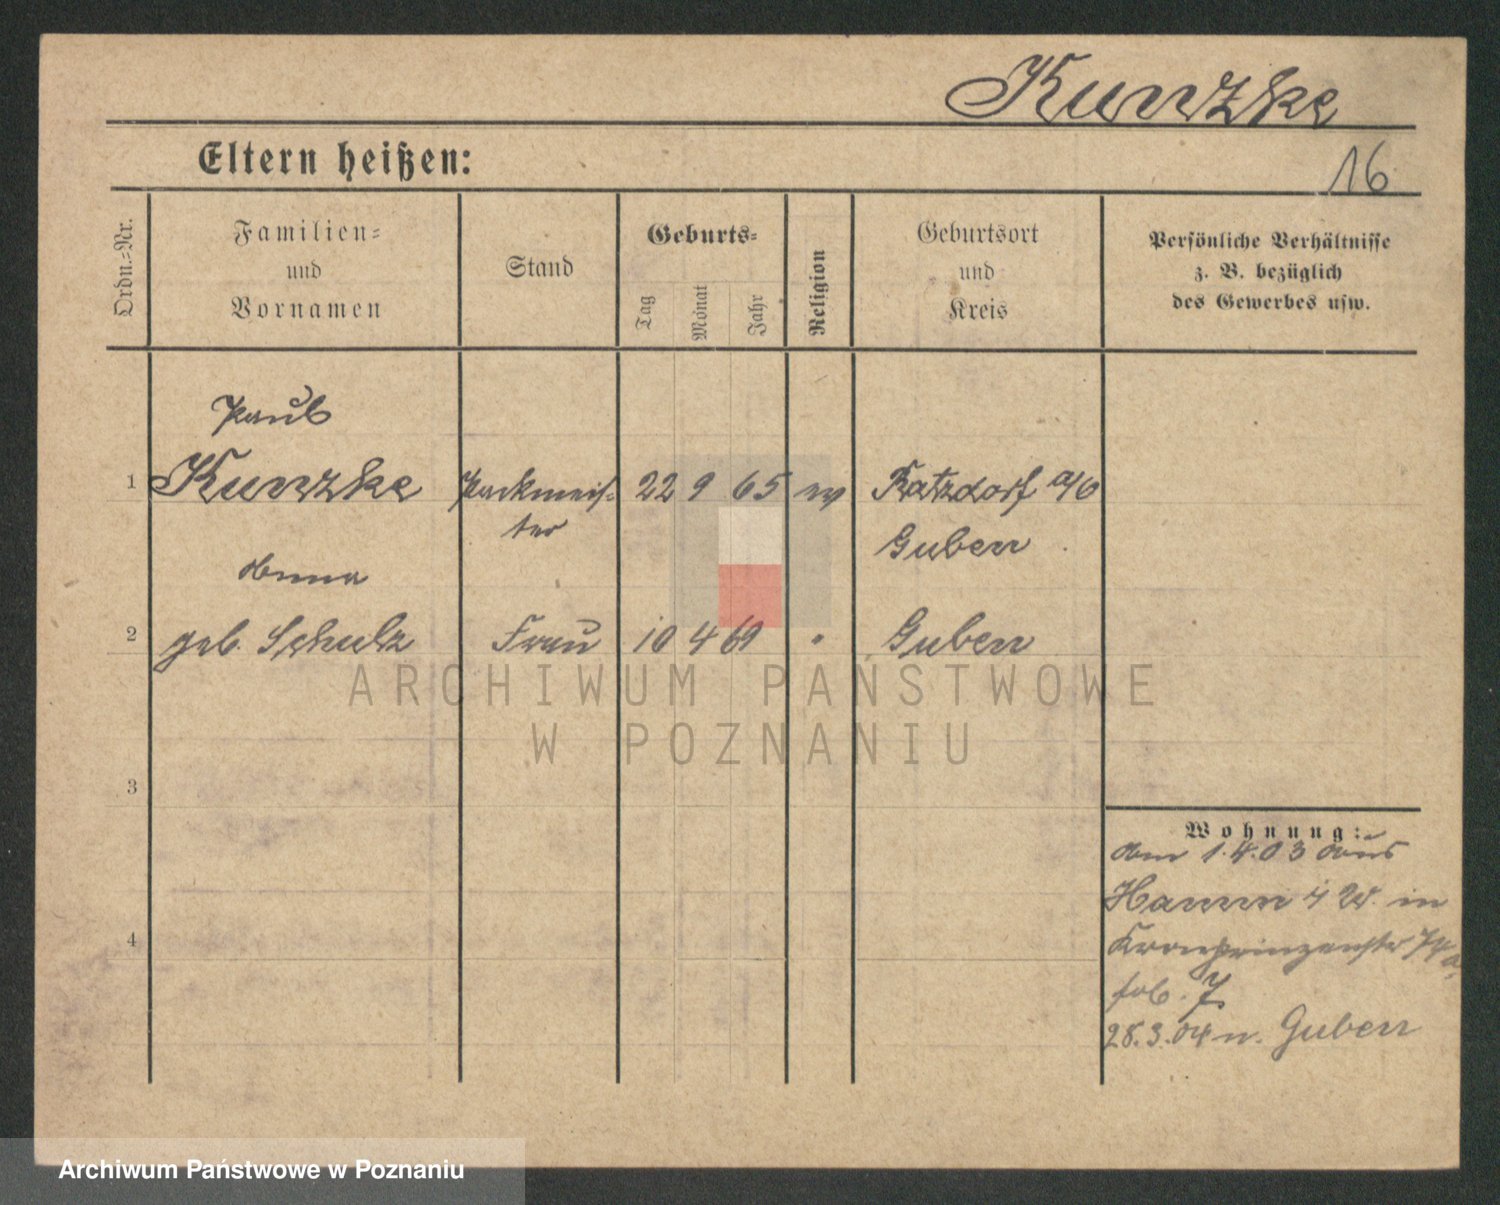 Kunzke
Eltern heißen:
16
Ordn.-Nr.
Familien-
und
Vornamen
Stand
Geburts-
Tag
Monat
Jahr
Religion
Geburtsort
und
Kreis
Persönliche Verhältnisse
z. B. bezüglich
des Gewerbes usw.
Paul
1 Kunzke Packmeis- 22 9 65 ev Ratzdorf a/O
ter Guben
Anna
2 geb. Schulz Frau 10 4 69 " Guben
3
4
Wohnung:
Am 1.4.03 aus
Hamm i W. in
Kronprinzenstr
28.3.04 n. Guben
ARCHIWUM PAŃSTWOWE
W POZNANIU
Archiwum Państwowe w Poznaniu